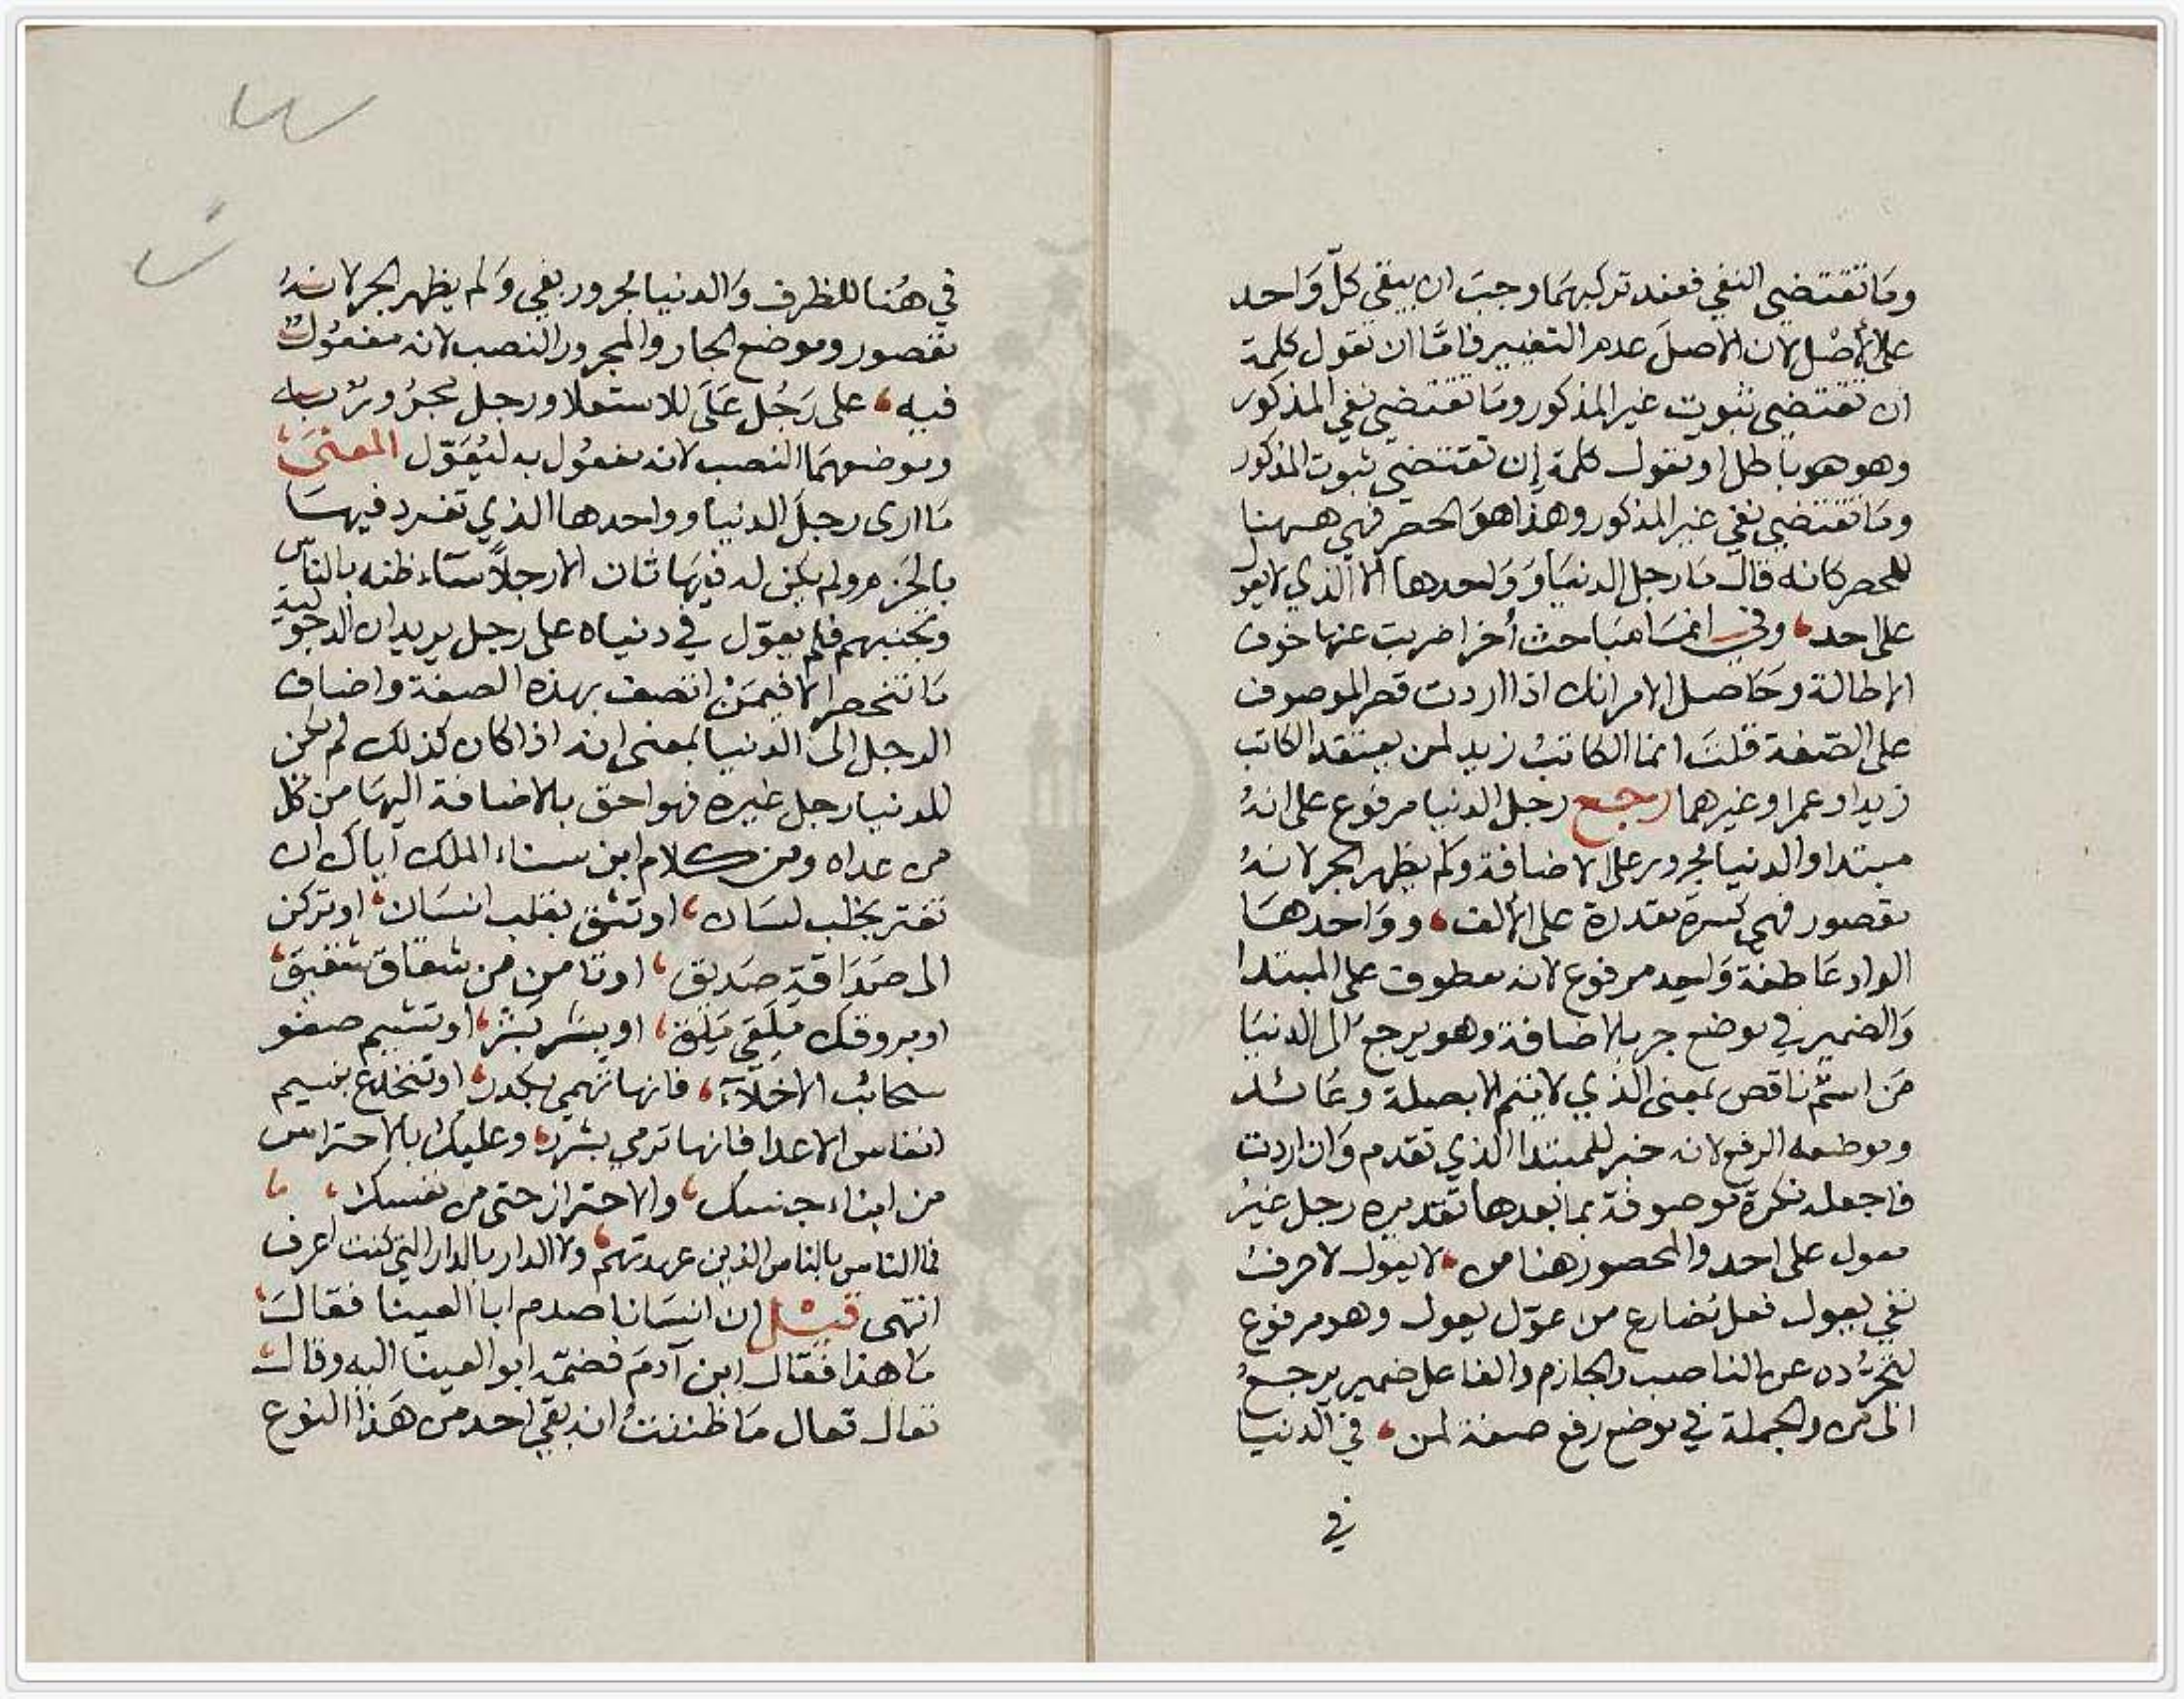 وما تقتضي النفي فعند تركيبهما وجب ان يبقى كلّ واحد
على الأصل لان الاصل عدم التغيير فامّا ان نقول كلمة
ان تقتضي ثبوت غير المذكور وما تقتضي نفي المذكور
وهو هو باطل او نقول كلمة إن تقتضي ثبوت المذكور
وما تقتضي نفي غير المذكور وهذا هو الحصر فهي ههنا
للحصر كانه قال ما رجل الدنيا وواحدها الا الذي لا يعول
على احد، وفي انما مباحث أخر اضربت عنها خوف
الاطالة وحاصل الامر انك اذا اردت قصر الموصوف
على الصفة قلت انما الكاتب زيد لمن يعتقد الكاتب
زيدا وعمرا وغيرهما رجع رجل الدنيا مرفوع على انهُ
مبتدا والدنيا مجرور على الاضافة ولم يظهر الجر لانهُ
مقصور فهي كسرة مقدرة على الألف، وواحدها
الواو عاطفة وواحد مرفوع لانه معطوف على المبتدا
والضمير في موضع جر بالاضافة وهو يرجع الى الدنيا
من اسم ناقص بمعنى الذي لا يتم الا بصلة وعائد
وموضعه الرفع لانه خبر للمبتدا الذي تقدم وان اردت
فاجعله نكرة موصوفة بما بعدها تقديره رجل غيرُ
معول على احد والمحصور هنا من، لا يعول لا حرف
نفي يعول فعل مضارع من عوّل يعول وهو مرفوع
لتجرّده عن الناصب والجازم والفاعل ضمير يرجعُ
الى من والجملة في موضع رفع صفة لمن، في الدنيا
في
في هُنا للظرف والدنيا مجرور بفي ولم يظهر الجر لانهُ
مقصور وموضع الجار والمجرور النصب لانه مفعول
فيه، على رَجُل عَلَى للاستعلا ورجل مجرور به
وموضعهما النصب لانه مفعُول به ليُعَوّل المعنى
ما ارى رجل الدنيا وواحدها الذي تفرد فيها
بالحَزم ولم يكن له فيها ثان الا رجلاً سآء ظنه بالناس
وتجنبهم فلم يعوّل في دنياه على رجل يريد ان الرجولية
ما تنحصر الا فيمَنْ اتصف بهذه الصفة واضاف
الرجل الى الدنيا بمعنى انه اذا كان كذلك لم يكن
للدنيا رجل غيره فهو احق بالاضافة اليها من كل
من عداه ومن كلام ابن سناء الملك آياك ان
تغتر بخلب لسان، او تثق بقلب انسان، او تركن
الى صَدَاقة صَديق، او تامن من شقاق شقيق،
او يروقك مَلَقي مَلق، او بشر بَشر، او تشيم صفو
سحائب الاخلّآء، فانها تهمي بكدر، او تنخدع بنسيم
انفاس الاعدا فانها ترمي بشرر، وعليك بالاحتراس
من ابناء جنسك، والاحتراز حتى من نفسك،
فما الناس بالناس الذين عهدتهم، ولا الدار بالدار التي كنت اعرف
انتهى قيل ان انسانا صدم ابا العينا فقالَ
ما هذا فقال ابن آدمَ فضمّه ابو العينا اليه وقال
تعال تعال ما ظننتُ انه بقي احد من هَذا النوع